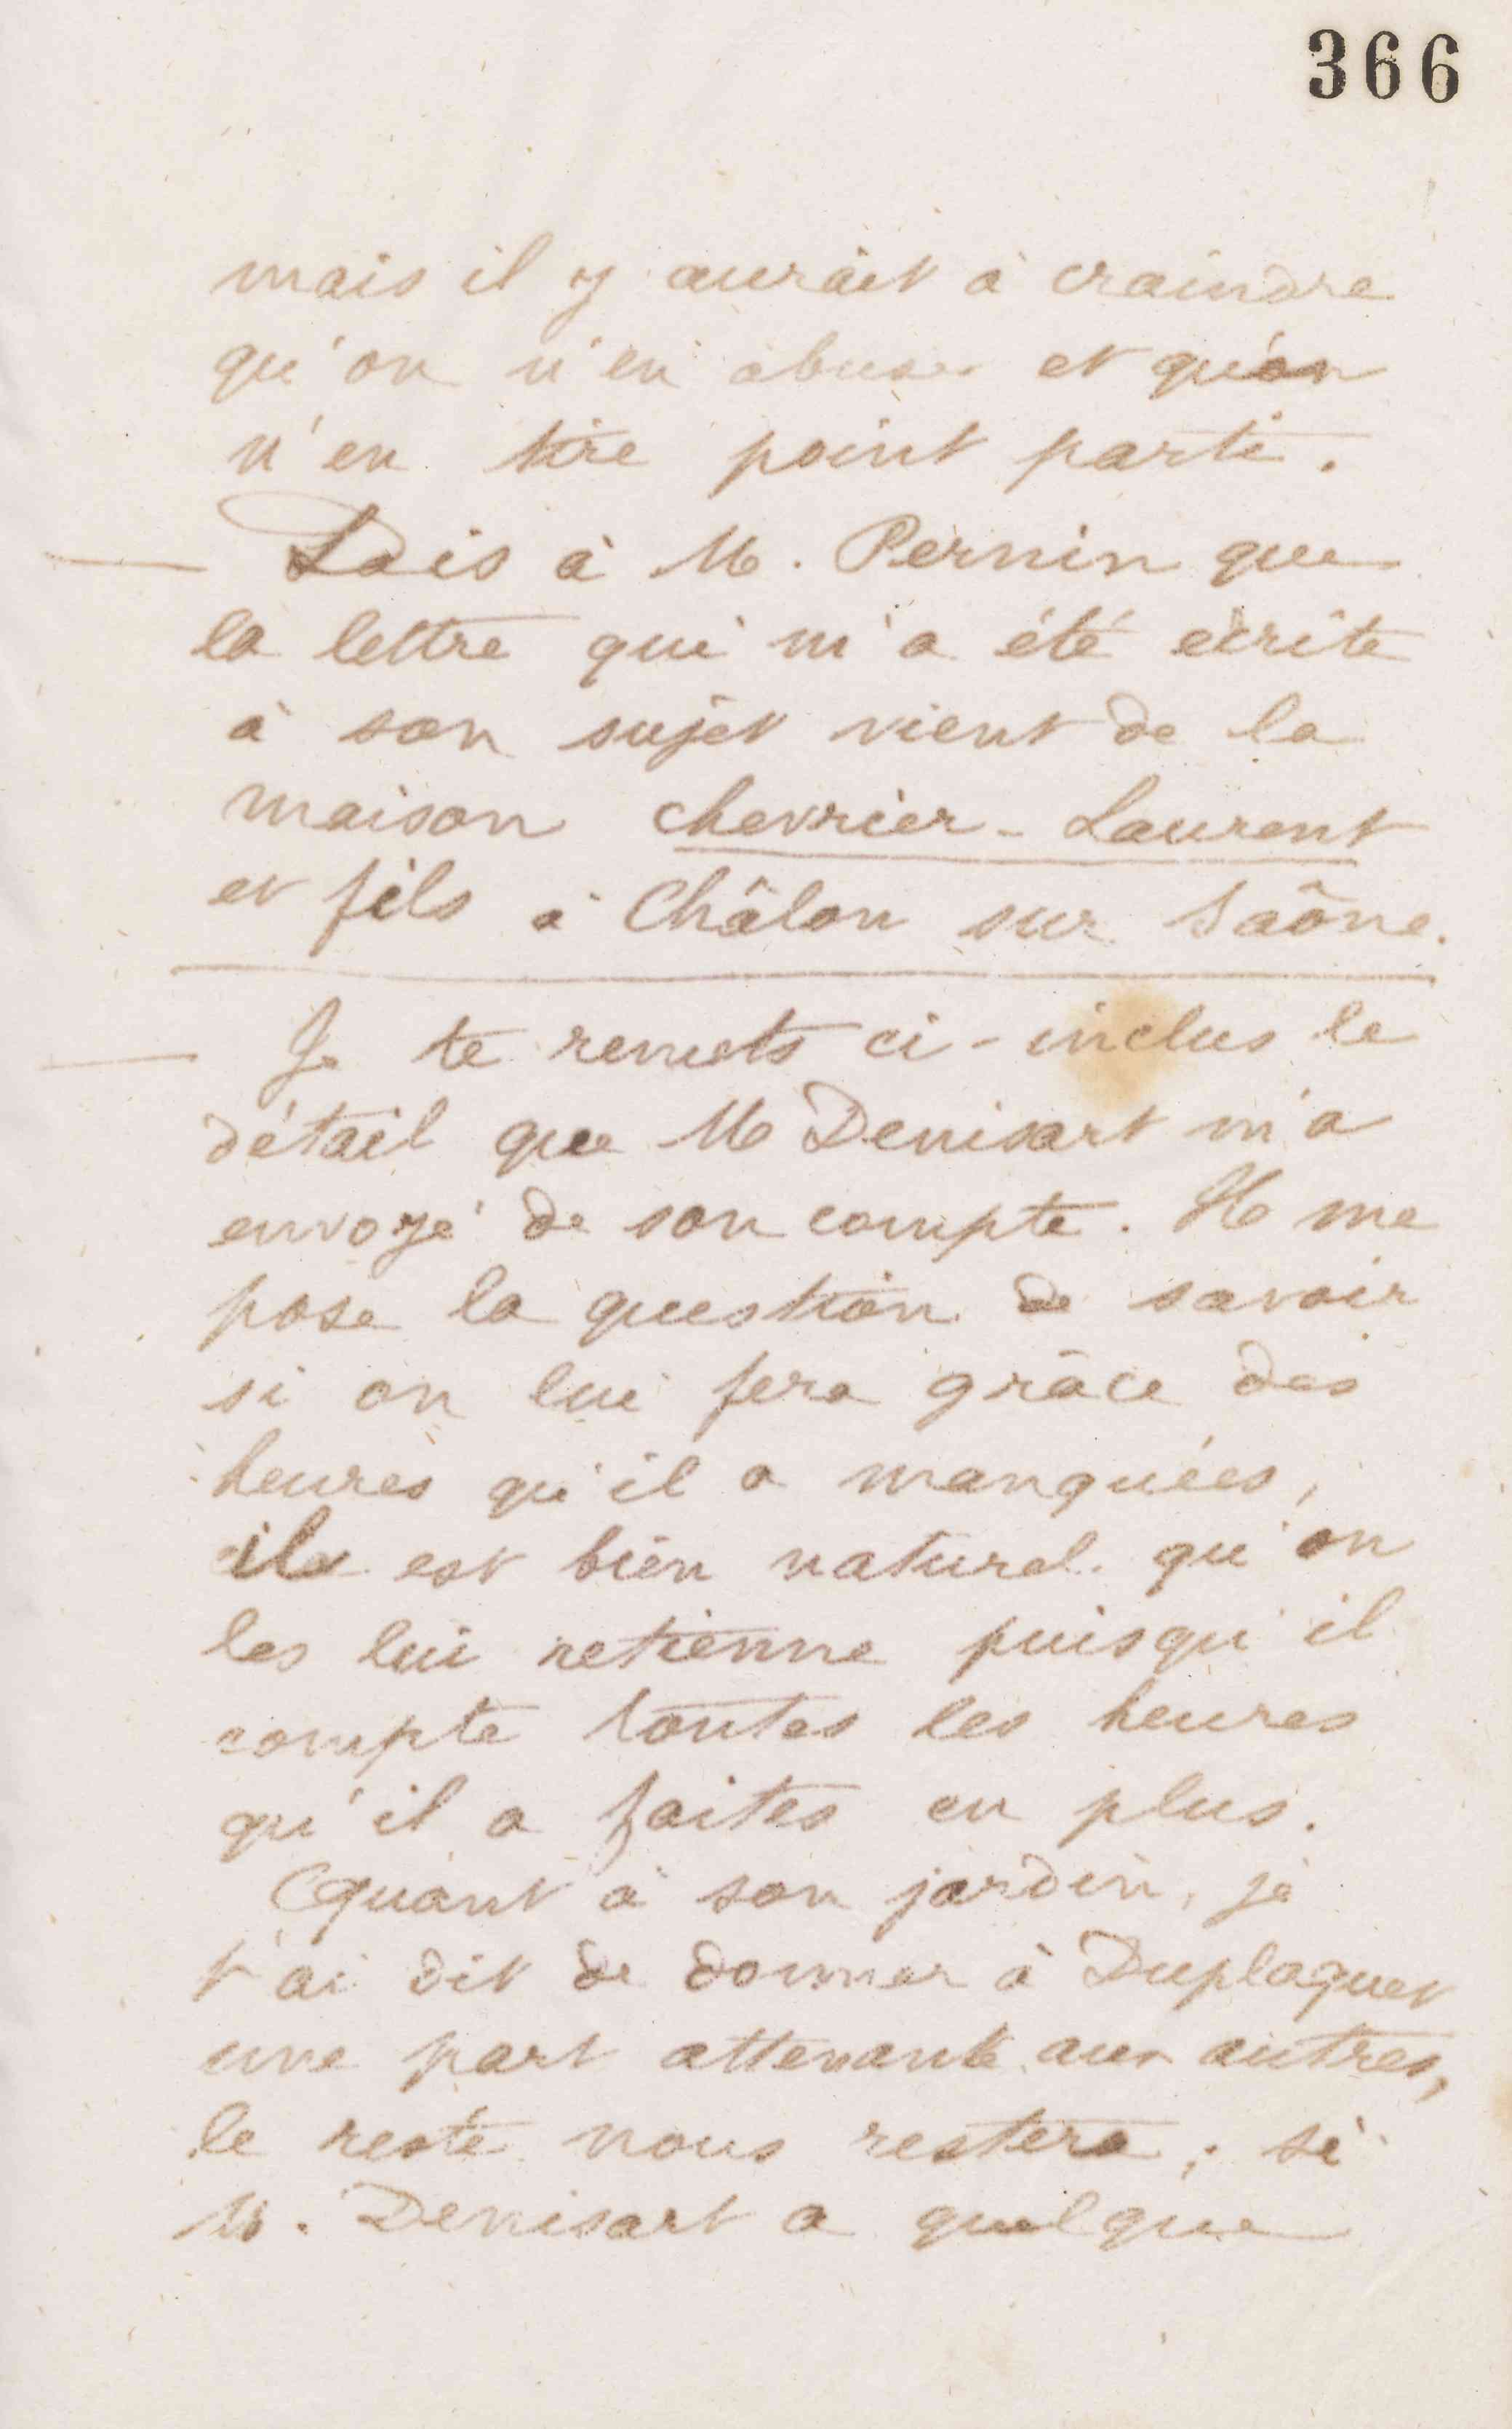 366
mais il y aurait à craindre
qu'on n'en abuse et qu'on
n'en tire point parti.
— Dis à M. Pernin que
la lettre qui m'a été écrite
à son sujet vient de la
maison chevrier-Laurent
et fils à Châlon sur Saône.
— Je te remets ci-inclus le
détail que M Denisart m'a
envoyé de son compte. Il me
pose la question de savoir
si on lui fera grâce des
heures qu'il a manquées,
il est bien naturel qu'on
les lui retienne puisqu'il
compte toutes les heures
qu'il a faites en plus.
Quant à son jardin, je
t'ai dit de donner à Duplaquet
une part attenante aux autres,
le reste nous restera ; si
M. Denisart a quelque